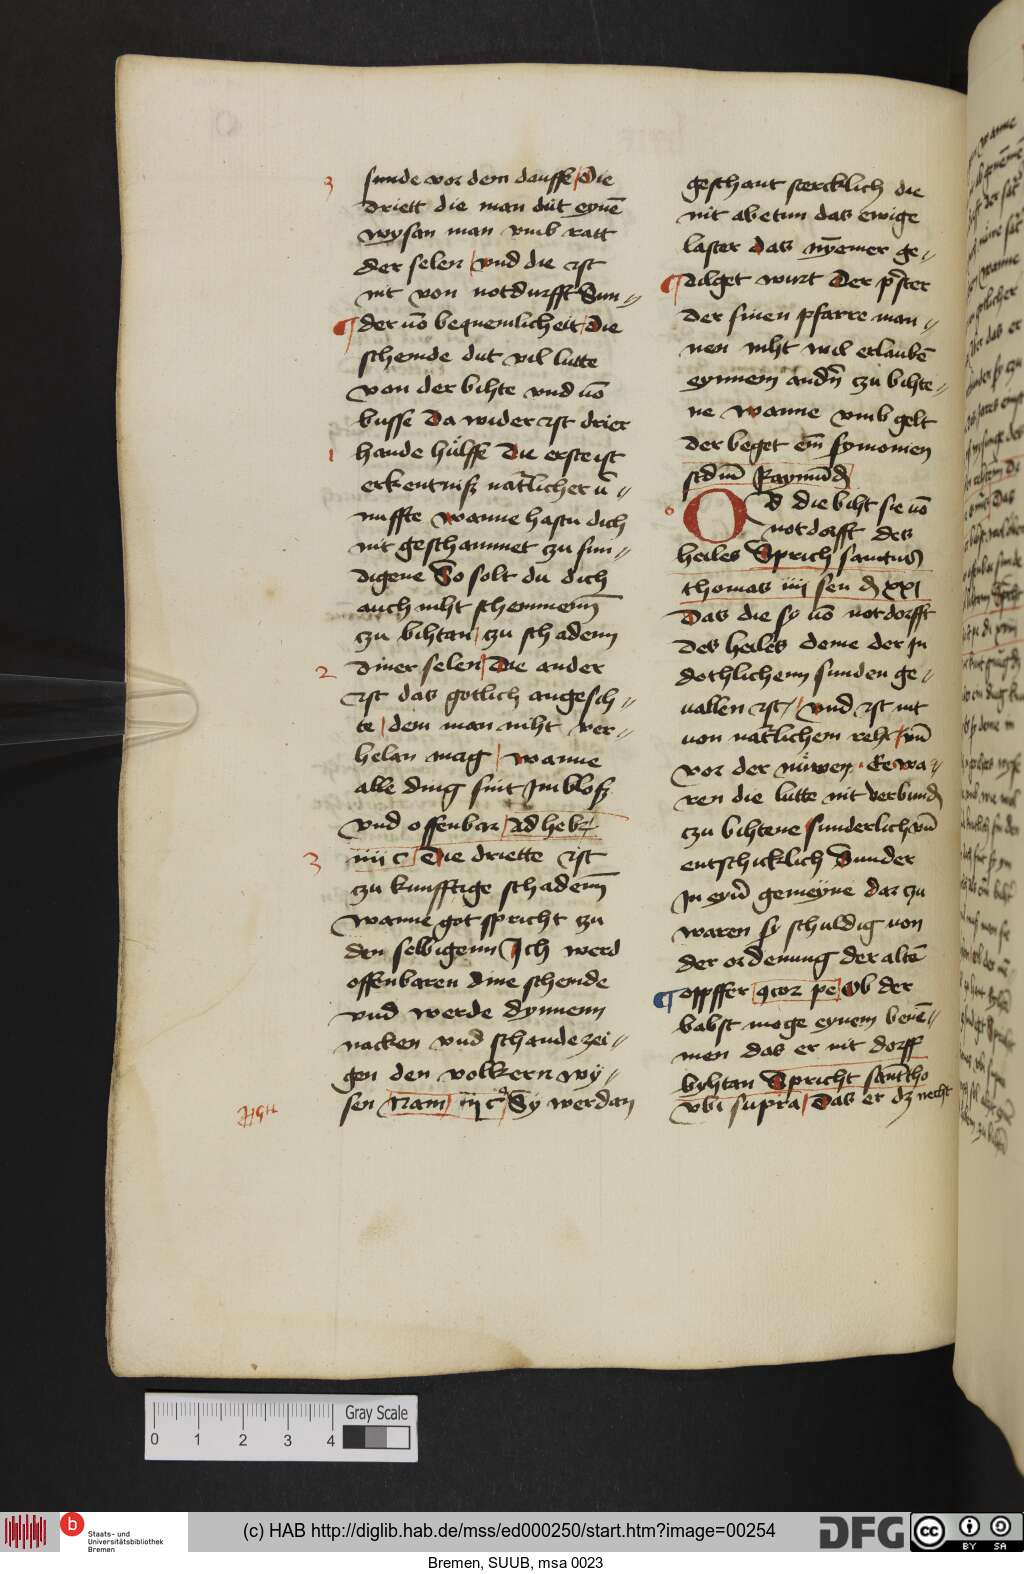 sunde vor dem dauffe / Die
driett die man dut eynē
wysan man vmb ratt
der selen / vnd die ist
nit von notdurfft Sun〃
der vō bequemlicheit / Die
schemde dut vil lutte
van der bihte vnd vō
busse Da wider ist drier
hande hulffe Die erste ist
erkentnisz natlicher v̄〃
nuffte wanne hastu dich
nit geschammet zu sun〃
digene So solt du dich
auch niht schemmenn
czu bihtan / czu schadenn
diner selen / Die ander
ist das gotlich angesch〃
te / dem man niht ver〃
helan mag / wanne
alle ding sint Im blosz
vnd offenbar / Ad hebr
iiii c / Die driette ist
zu kunfftige schadenn
wanne got spricht zu
den selbigenn Ich werd
offenbaren dine schemde
vnd werde dynnenn
nacken vnd schande zei〃
gen den volkern wy〃
sen / Nam / iij c Sy werdan
geschant stercklich die
nit abetun das ewige
laster Das nyemer ge〃
dilget wurt Der pster
der sinen pfarre man〃
nen niht wil erlaubē
eynnem andn czu bihte〃
ne wanne vmb gelt
der beget em symonien
scdm Raymūd
OB die biht sie vō
notdorfft des
heiles Sprich sanctus
thomas iiii sen d xxi
Das die sy vō notdorfft
des heiles deme der In
dothlichenn sunden ge〃
uallen ist / vnd ist nit
von natlichem reht / vn
vor der nuwen Ee wa〃
ren die lutte nit verbund
czu bihtene sunderlich vn
entschicklich Sunder
In eyn gemeyne dar zu
waren sy schuldig von
der ordenung der altē
opffer / 9cor pe / Ob der
babst moge eynem benē〃
men das er nit dorff
byhtan Spricht sant tho
vbi supra / Das er dz necht
3
1
2
3
Gray Scale
0 1 2 3 4
Staats- und
Universitätsbibliothek
Bremen
(c) HAB http://diglib.hab.de/mss/ed000250/start.htm?image=00254
DFG
cc BY SA
Bremen, SUUB, msa 0023